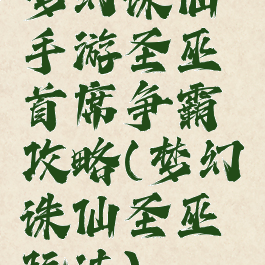 梦幻诛仙
手游圣巫
首席争霸
攻略(梦幻
诛仙圣巫